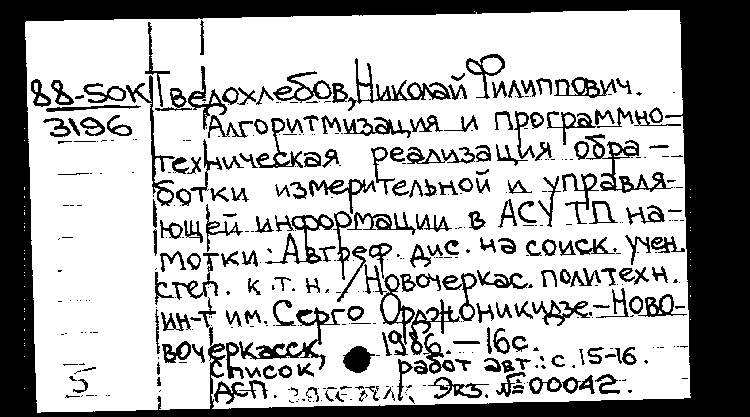 88-50К Тведохлебов, Николай Филиппович.
3196 Алгоритмизация и программно-
техническая реализация обра-
ботки измерительной и управля-
ющей информации в АСУ ТП на-
мотки: Автореф. дис. на соиск. учен.
степ. к.т.н. / Новочеркас. политехн.
ин-т им. Серго Орджоникидзе.-Ново-
вочеркасск, 1986.-16с.
Список работ авт.: с.15-16.
5 ДСП. Экз. №00042.